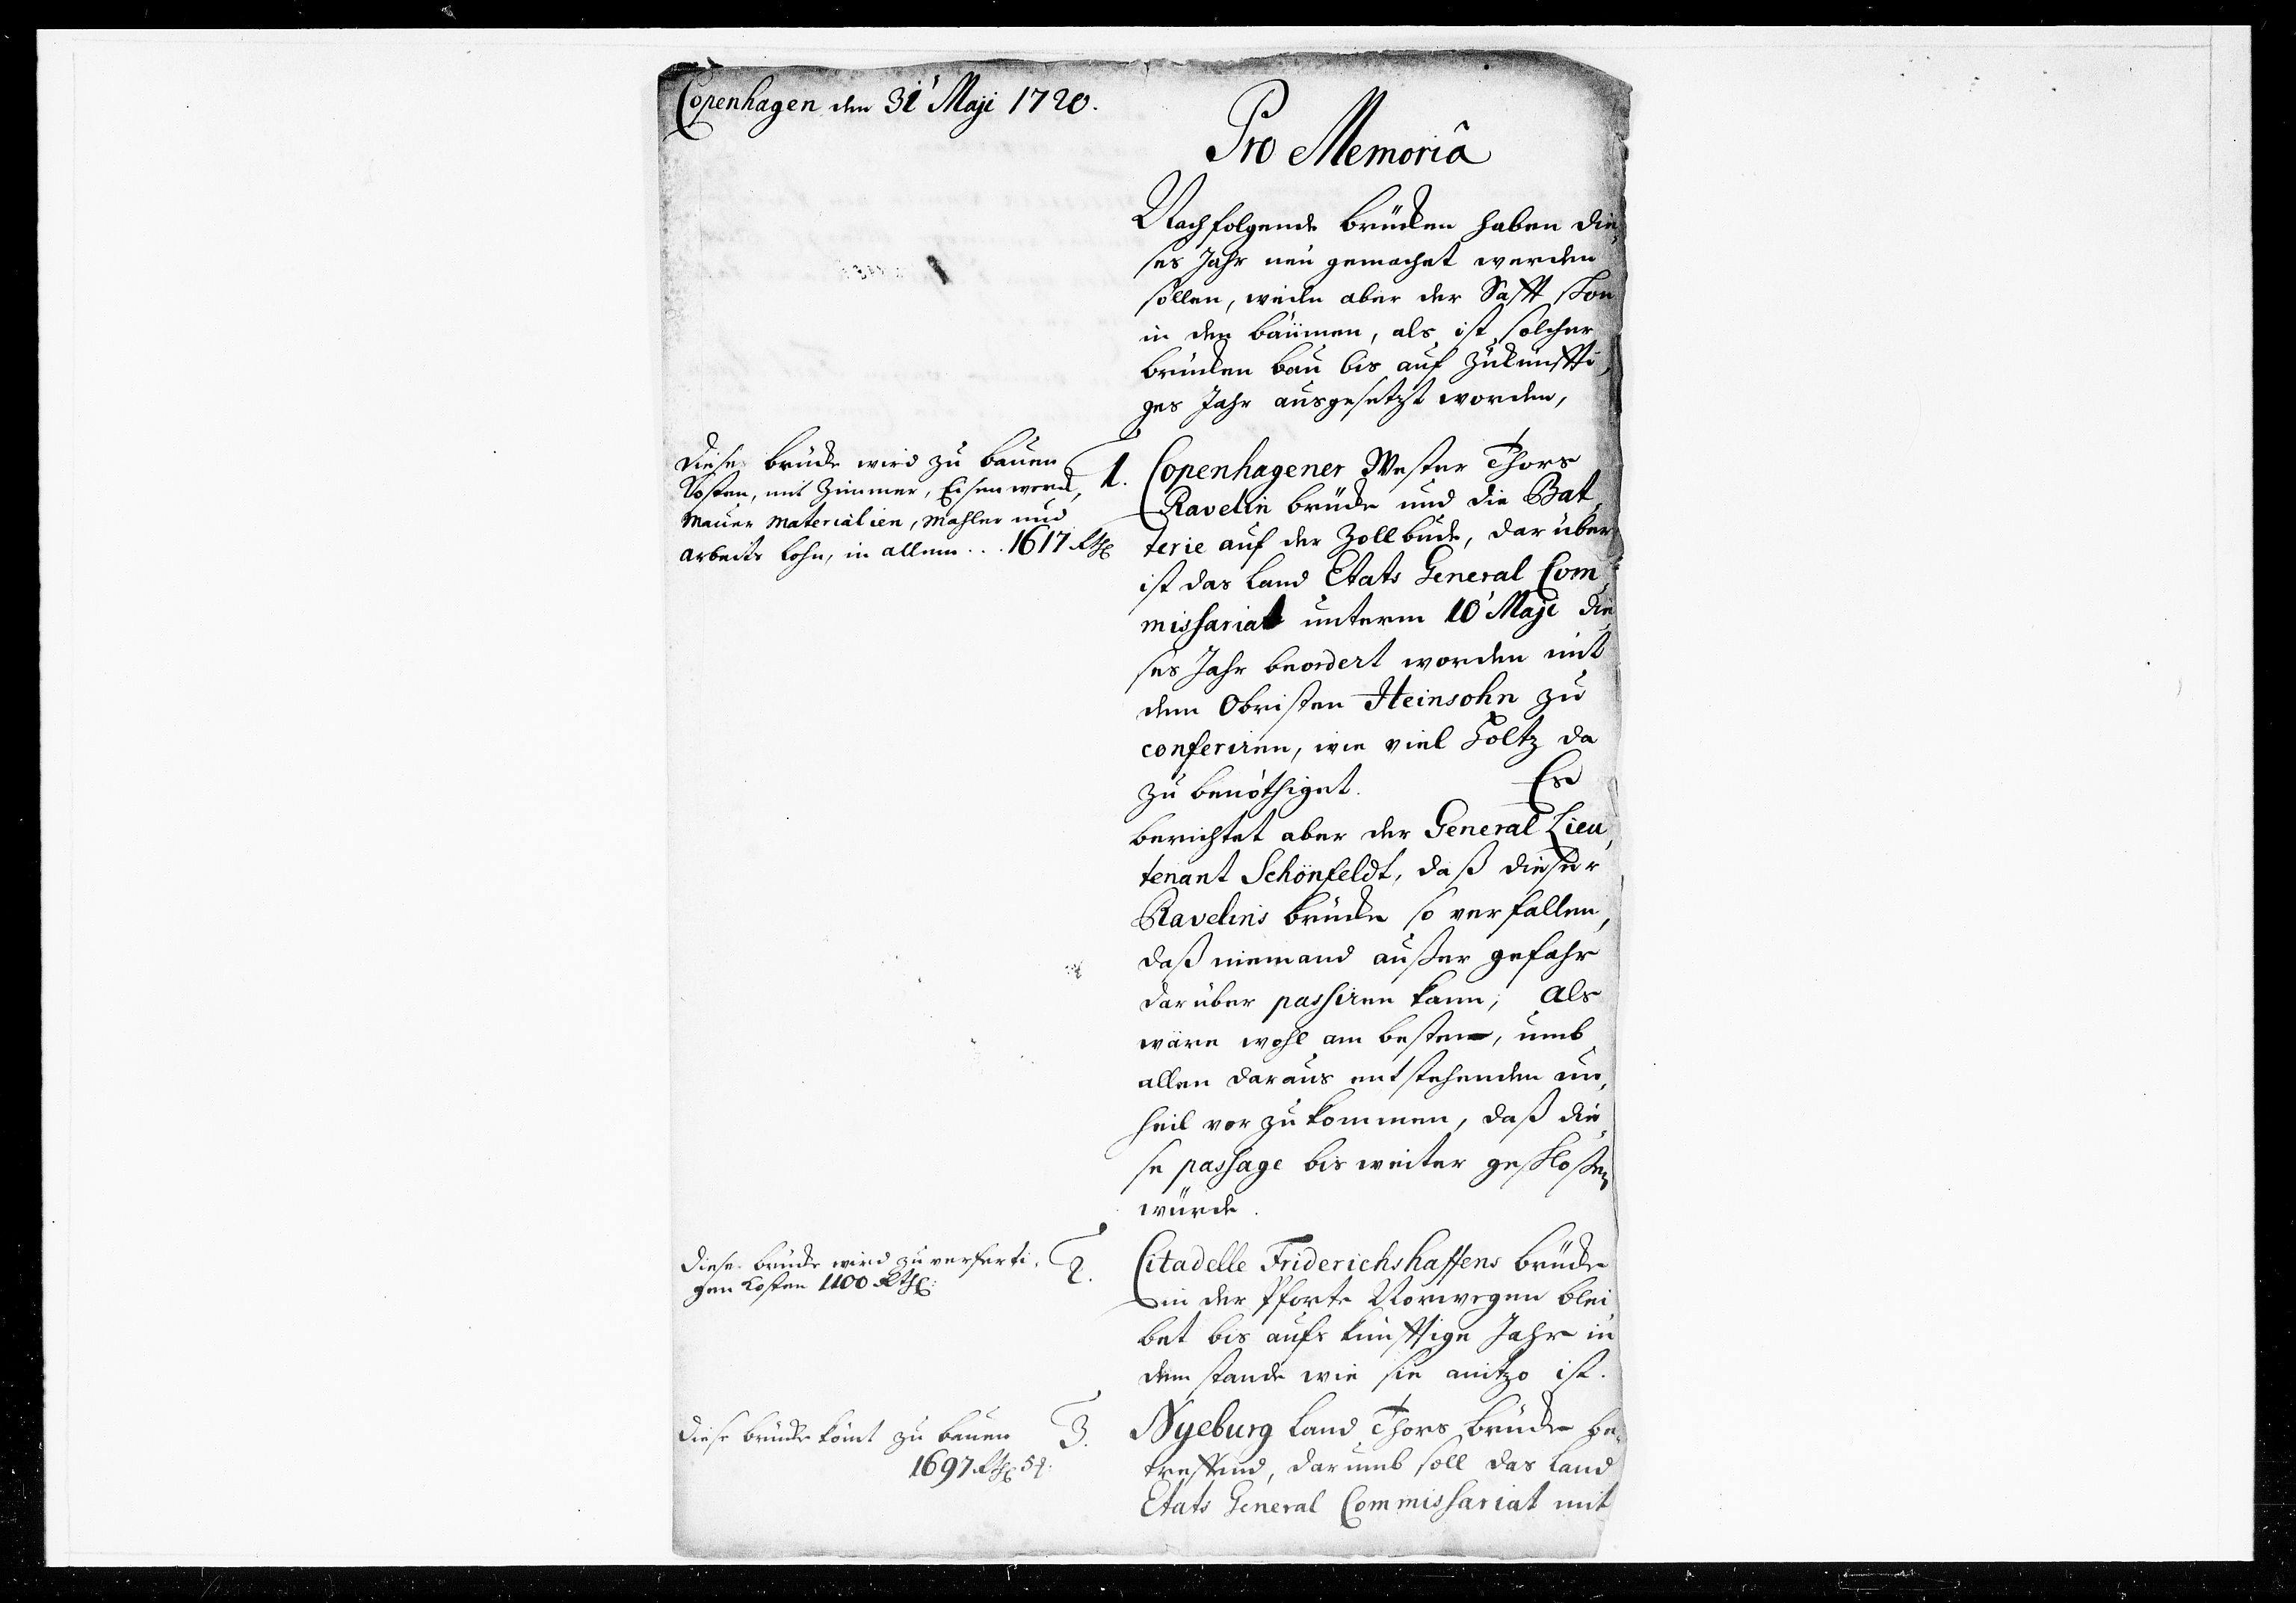 Copenhagen den 31' Maji 1720.
Pro Memoriâ
Nachfolgende brücken haben die,
ses Jahr neü gemachet werden
sollen, weilen aber der Safft schon
in den bäümen, als ist solcher
brücken bau bis auf zukünffti,
ges Jahr ausgesetzt worden,
Diese brücke wird zu bauen
Kosten, mit Zimmer, Eisenwerck,
Mauer Materialien, Mahler und
arbeits lohn, in allem... 1617 Rthlr
1. Copenhagener Wester Thors
Ravelin brücke und die Bat,
terie auf der Zollbude, darüber
ist das Land Etats General Com,
missariat unterm 10' Maji die,
ses Jahr beordert worden mit
dem Obristen Heinsohn zu
conferiren, wie viel Holtz da
zu benöthiget. Es
berichtet aber der General Lieu,
tenant Schönfeldt, daß dieser
Ravelins brücke so verfallen,
daß niemand außer gefahr
darüber passiren kann; Als
wäre wohl am besten, umb
allen daraus entstehenden un,
heil vorzukommen, daß die,
se passage bis weiter geschloßen
würde.
Diese brücke wird zu verferti,
gen Kosten 1100 Rthlr:
2. Citadelle Friderichshaffens brücke
in der Pforte Norwegen blei,
bet bis aufs künfftige Jahr in
dem stande wie sie anitzo ist.
Diese brücke kömt zu bauen
1697 Rthlr 5 ß:
3. Nyeburg Land Thors brücke be,
treffend, darumb soll das Land
Etats General Commissariat mit